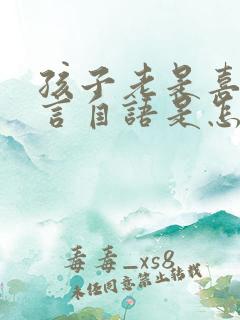 孩子老是喜
言自語是怎
毒毒_xs8
未经同意禁止转载